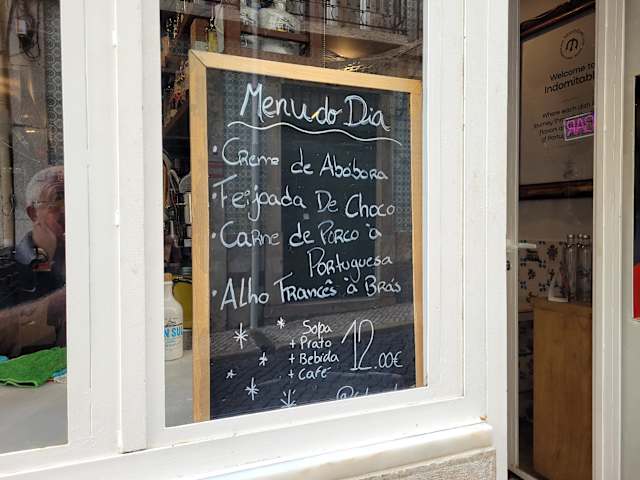 Menu do Dia
• Creme de Abóbora
• Feijoada De Choco
• Carne de Porco à
Portuguesa
• Alho Francês à Brás
Sopa
+ Prato
+ Bebida
+ Café
12.00€
Welcome to
Indomitable